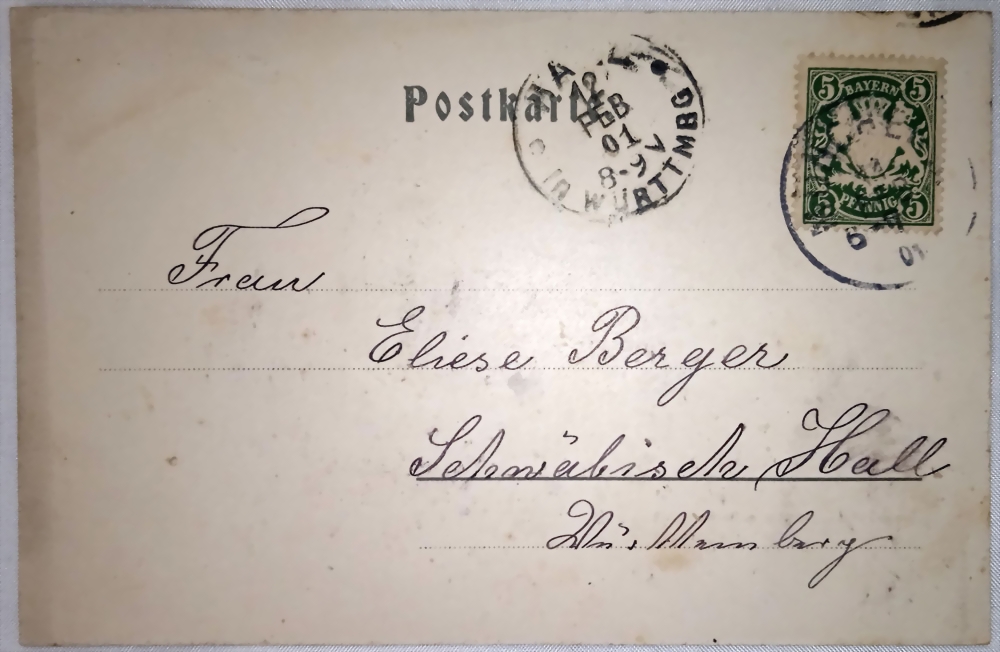 Postkarte
HALL
12
FEB
01
8-9 V
IN WÜRTTMBG
5 BAYERN 5
5 PFENNIG 5
6
01
Frau
Eliese Berger
Schwäbisch Hall
Württemberg